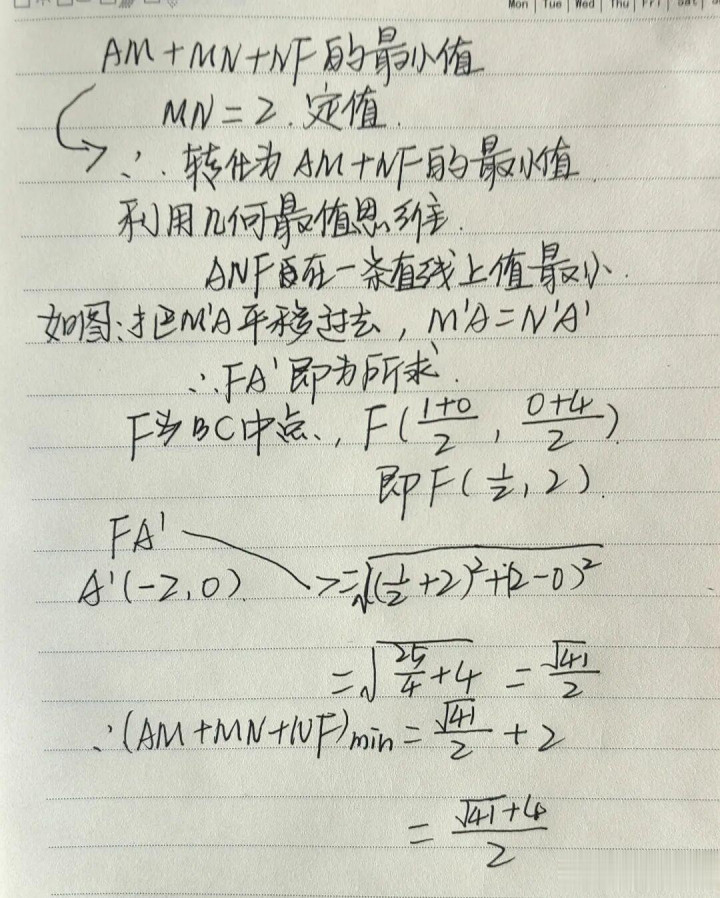 Mon | Tue | Wed | Thu | Fri | Sat |
AM+MN+NF的最小值
MN=2.定值.
∴.转化为AM+NF的最小值.
利用几何最值思维.
ANF在一条直线上值最小.
如图:把M'A平移过去,M'A=N'A'
∴FA'即为所求.
F为BC中点.,F(\frac{1+0}{2},\frac{0+4}{2})
即F(\frac{1}{2},2).
FA'
A'(-2,0) =\sqrt{(\frac{1}{2}+2)^2+(2-0)^2}
=\sqrt{\frac{25}{4}+4}=\frac{\sqrt{41}}{2}
∴(AM+MN+NF)min=\frac{\sqrt{41}}{2}+2
=\frac{\sqrt{41}+4}{2}